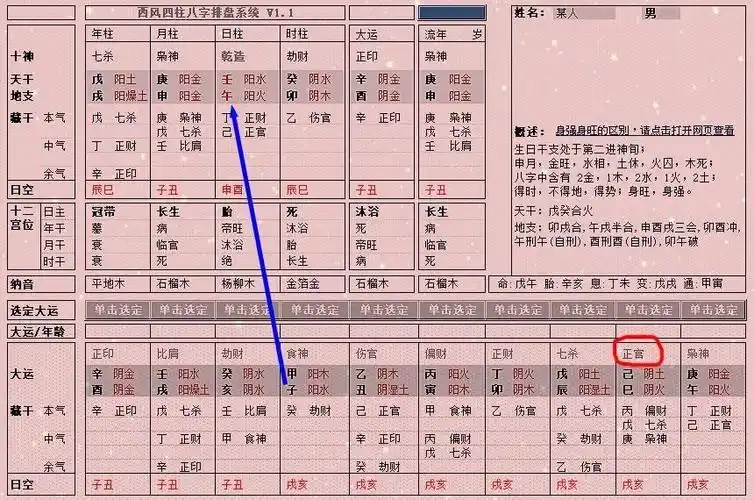 西风四柱八字排盘系统 V1.1
姓名: 某人 男
年柱 月柱 日柱 时柱 大运 流年 岁
十神 七杀 枭神 乾造 劫财 正印 枭神
天干 戊 阳土 庚 阳金 壬 阳水 癸 阴水 辛 阴金 庚 阳金
地支 戌 阳燥土 申 阳金 午 阳火 卯 阴木 酉 阴金 申 阳金
藏干 本气 戊 七杀 庚 枭神 丁 正财 乙 伤官 辛 正印 庚 枭神
戊 七杀 己 正官 戊 七杀
中气 丁 正财 壬 比肩 壬 比肩
余气 辛 正印
日空 辰巳 子丑 申酉 辰巳 子丑 子丑
十二宫位 日主 冠带 长生 胎 死 沐浴 长生
年干 墓 病 帝旺 沐浴 死 病
月干 衰 临官 沐浴 胎 帝旺 临官
时干 衰 死 绝 长生 病 死
纳音 平地木 石榴木 杨柳木 金箔金 石榴木 石榴木
概述: 身强身旺的区别，请点击打开网页查看
生日干支处于第二进神旬;
申月, 金旺, 水相, 土休, 火囚, 木死;
八字中含有 2金, 1木, 2水, 1火, 2土;
得时, 不得地, 得势; 身旺, 身强。
天干: 戊癸合火
地支: 卯戌合, 午戌半合, 申酉戌三会, 卯酉冲, 午刑午(自刑), 酉刑酉(自刑), 卯午破
命:戊午 胎:辛亥 息:丁未 变:戊戌 通:甲寅
选定大运 单击选定 单击选定 单击选定 单击选定 单击选定 单击选定 单击选定 单击选定 单击选定 单击选定
大运/年龄
正印 比肩 劫财 食神 伤官 偏财 正财 七杀 正官 枭神
大运 辛 阴金 壬 阳水 癸 阴水 甲 阳木 乙 阴木 丙 阳火 丁 阴火 戊 阳土 己 阴土 庚 阳金
酉 阴金 戌 阳燥土 亥 阴水 子 阳水 丑 阴湿土 寅 阳木 卯 阴木 辰 阳湿土 巳 阴火 午 阳火
藏干 本气 辛 正印 戊 七杀 壬 比肩 癸 劫财 己 正官 甲 食神 乙 伤官 戊 七杀 丙 偏财 丁 正财
戊 七杀 己 正官
中气 丁 正财 甲 食神 辛 正印 丙 偏财 癸 劫财 庚 枭神
戊 七杀
余气 辛 正印 癸 劫财 乙 伤官
日空 子丑 子丑 子丑 戌亥 戌亥 戌亥 戌亥 戌亥 戌亥 子丑